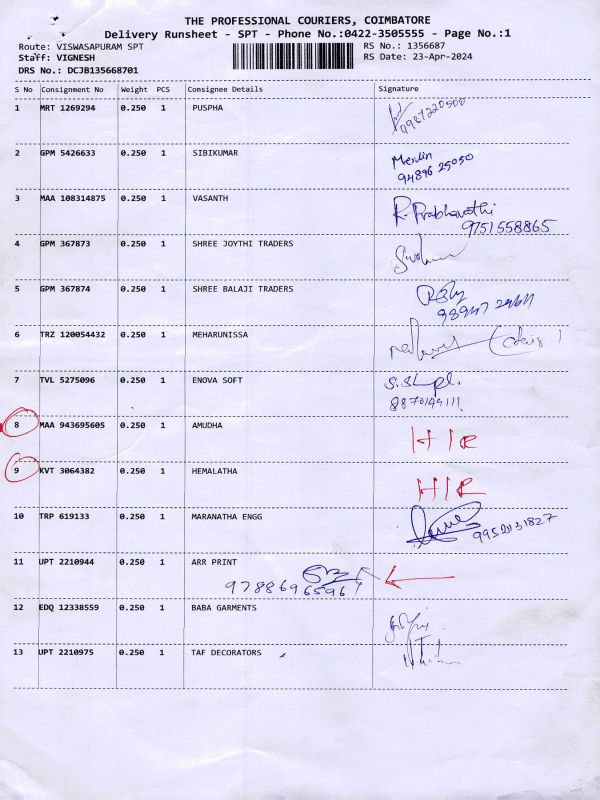 THE PROFESSIONAL COURIERS, COIMBATORE
Delivery Runsheet - SPT - Phone No.:0422-3505555 - Page No.:1
Route: VISWASAPURAM SPT
RS No.: 1356687
Staff: VIGNESH
RS Date: 23-Apr-2024
DRS No.: DCJB135668701
S No Consignment No Weight PCS Consignee Details Signature
1 MRT 1269294 0.250 1 PUSPHA
2 GPM 5426633 0.250 1 SIBIKUMAR Merlin
94896 25050
3 MAA 108314875 0.250 1 VASANTH R. Prabhavathi
9751558865
4 GPM 367873 0.250 1 SHREE JOYTHI TRADERS
5 GPM 367874 0.250 1 SHREE BALAJI TRADERS
6 TRZ 120054432 0.250 1 MEHARUNISSA
7 TVL 5275096 0.250 1 ENOVA SOFT
8 MAA 943695605 0.250 1 AMUDHA H/R
9 KVT 3064382 0.250 1 HEMALATHA H/R
10 TRP 619133 0.250 1 MARANATHA ENGG
11 UPT 2210944 0.250 1 ARR PRINT
9788696596
12 EDQ 12338559 0.250 1 BABA GARMENTS
13 UPT 2210975 0.250 1 TAF DECORATORS